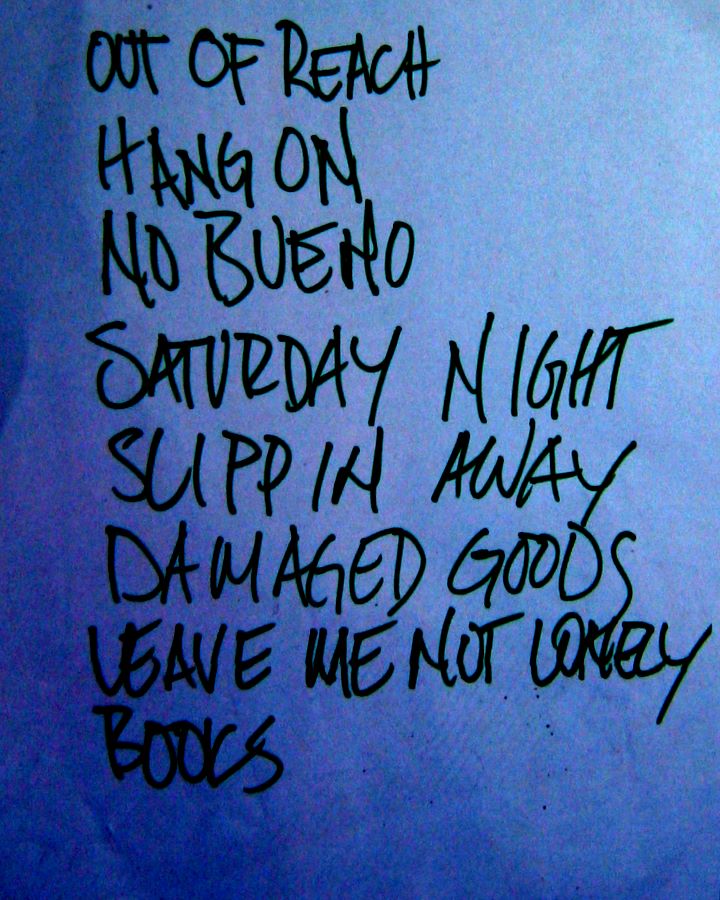 OUT OF REACH
HANG ON
NO BUENO
SATURDAY NIGHT
SLIPPIN AWAY
DAMAGED GOODS
LEAVE ME NOT LONELY
BOOKS